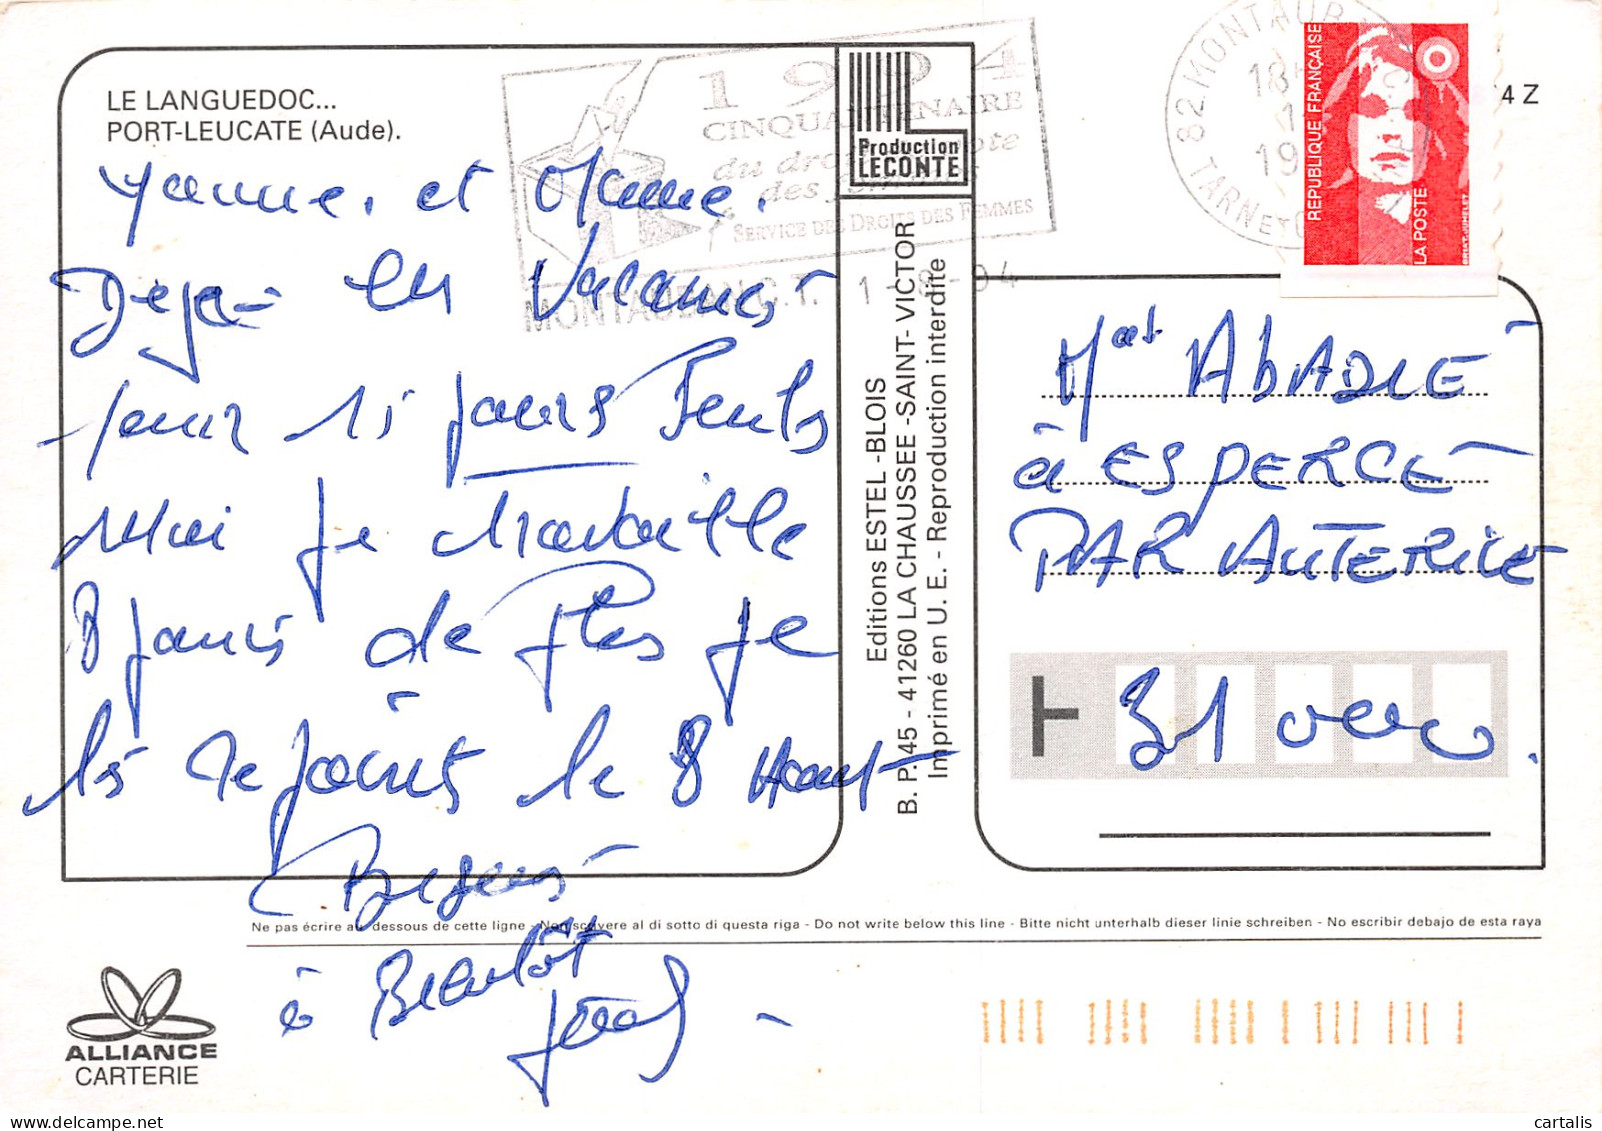 LE LANGUEDOC...
PORT-LEUCATE (Aude).
4 Z
1994
CINQUANTENAIRE
du droit de vote
des femmes
SERVICE DES DROITS DES FEMMES
MONTAUBAN C.T. 1-8-94
82 MONTAUBAN
18
1
19
TARN ET G
REPUBLIQUE FRANÇAISE
LA POSTE
Production
LECONTE
et
Deja en Vacances
pour 15 jours Seuls
Moi je travaille
8 jours de plus je
les rejoint le 8 Aout
Baisers
à Bientôt
Editions ESTEL -BLOIS
B. P.45 - 41260 LA CHAUSSEE -SAINT- VICTOR
Imprimé en U. E. - Reproduction interdite
ABADIE
à ESPERCE
PAR AUTERIVE
31
Ne pas écrire au dessous de cette ligne - Non scrivere al di sotto di questa riga - Do not write below this line - Bitte nicht unterhalb dieser linie schreiben - No escribir debajo de esta raya
ALLIANCE
CARTERIE
cartalis - delcampe.net